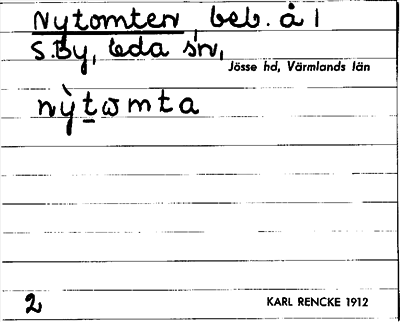 Nytomten, beb. å 1
S. By, Eda sn,
Jösse hd, Värmlands län
ny̆̀tωmta
2
KARL RENCKE 1912